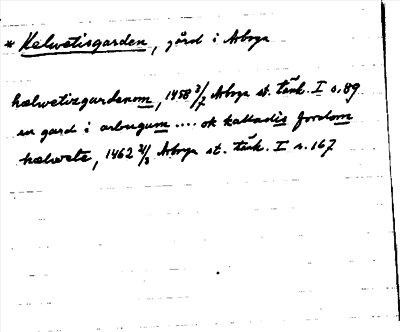 * Helvetisgarden, gård i Arboga
hælwetizgardenom, 1458 3/7 Arboga st. tänk. I s. 89
en gard i arbugum .... ok kalladis fordom
hælwete, 1462 2/3 Arboga st. tänk. I s. 167